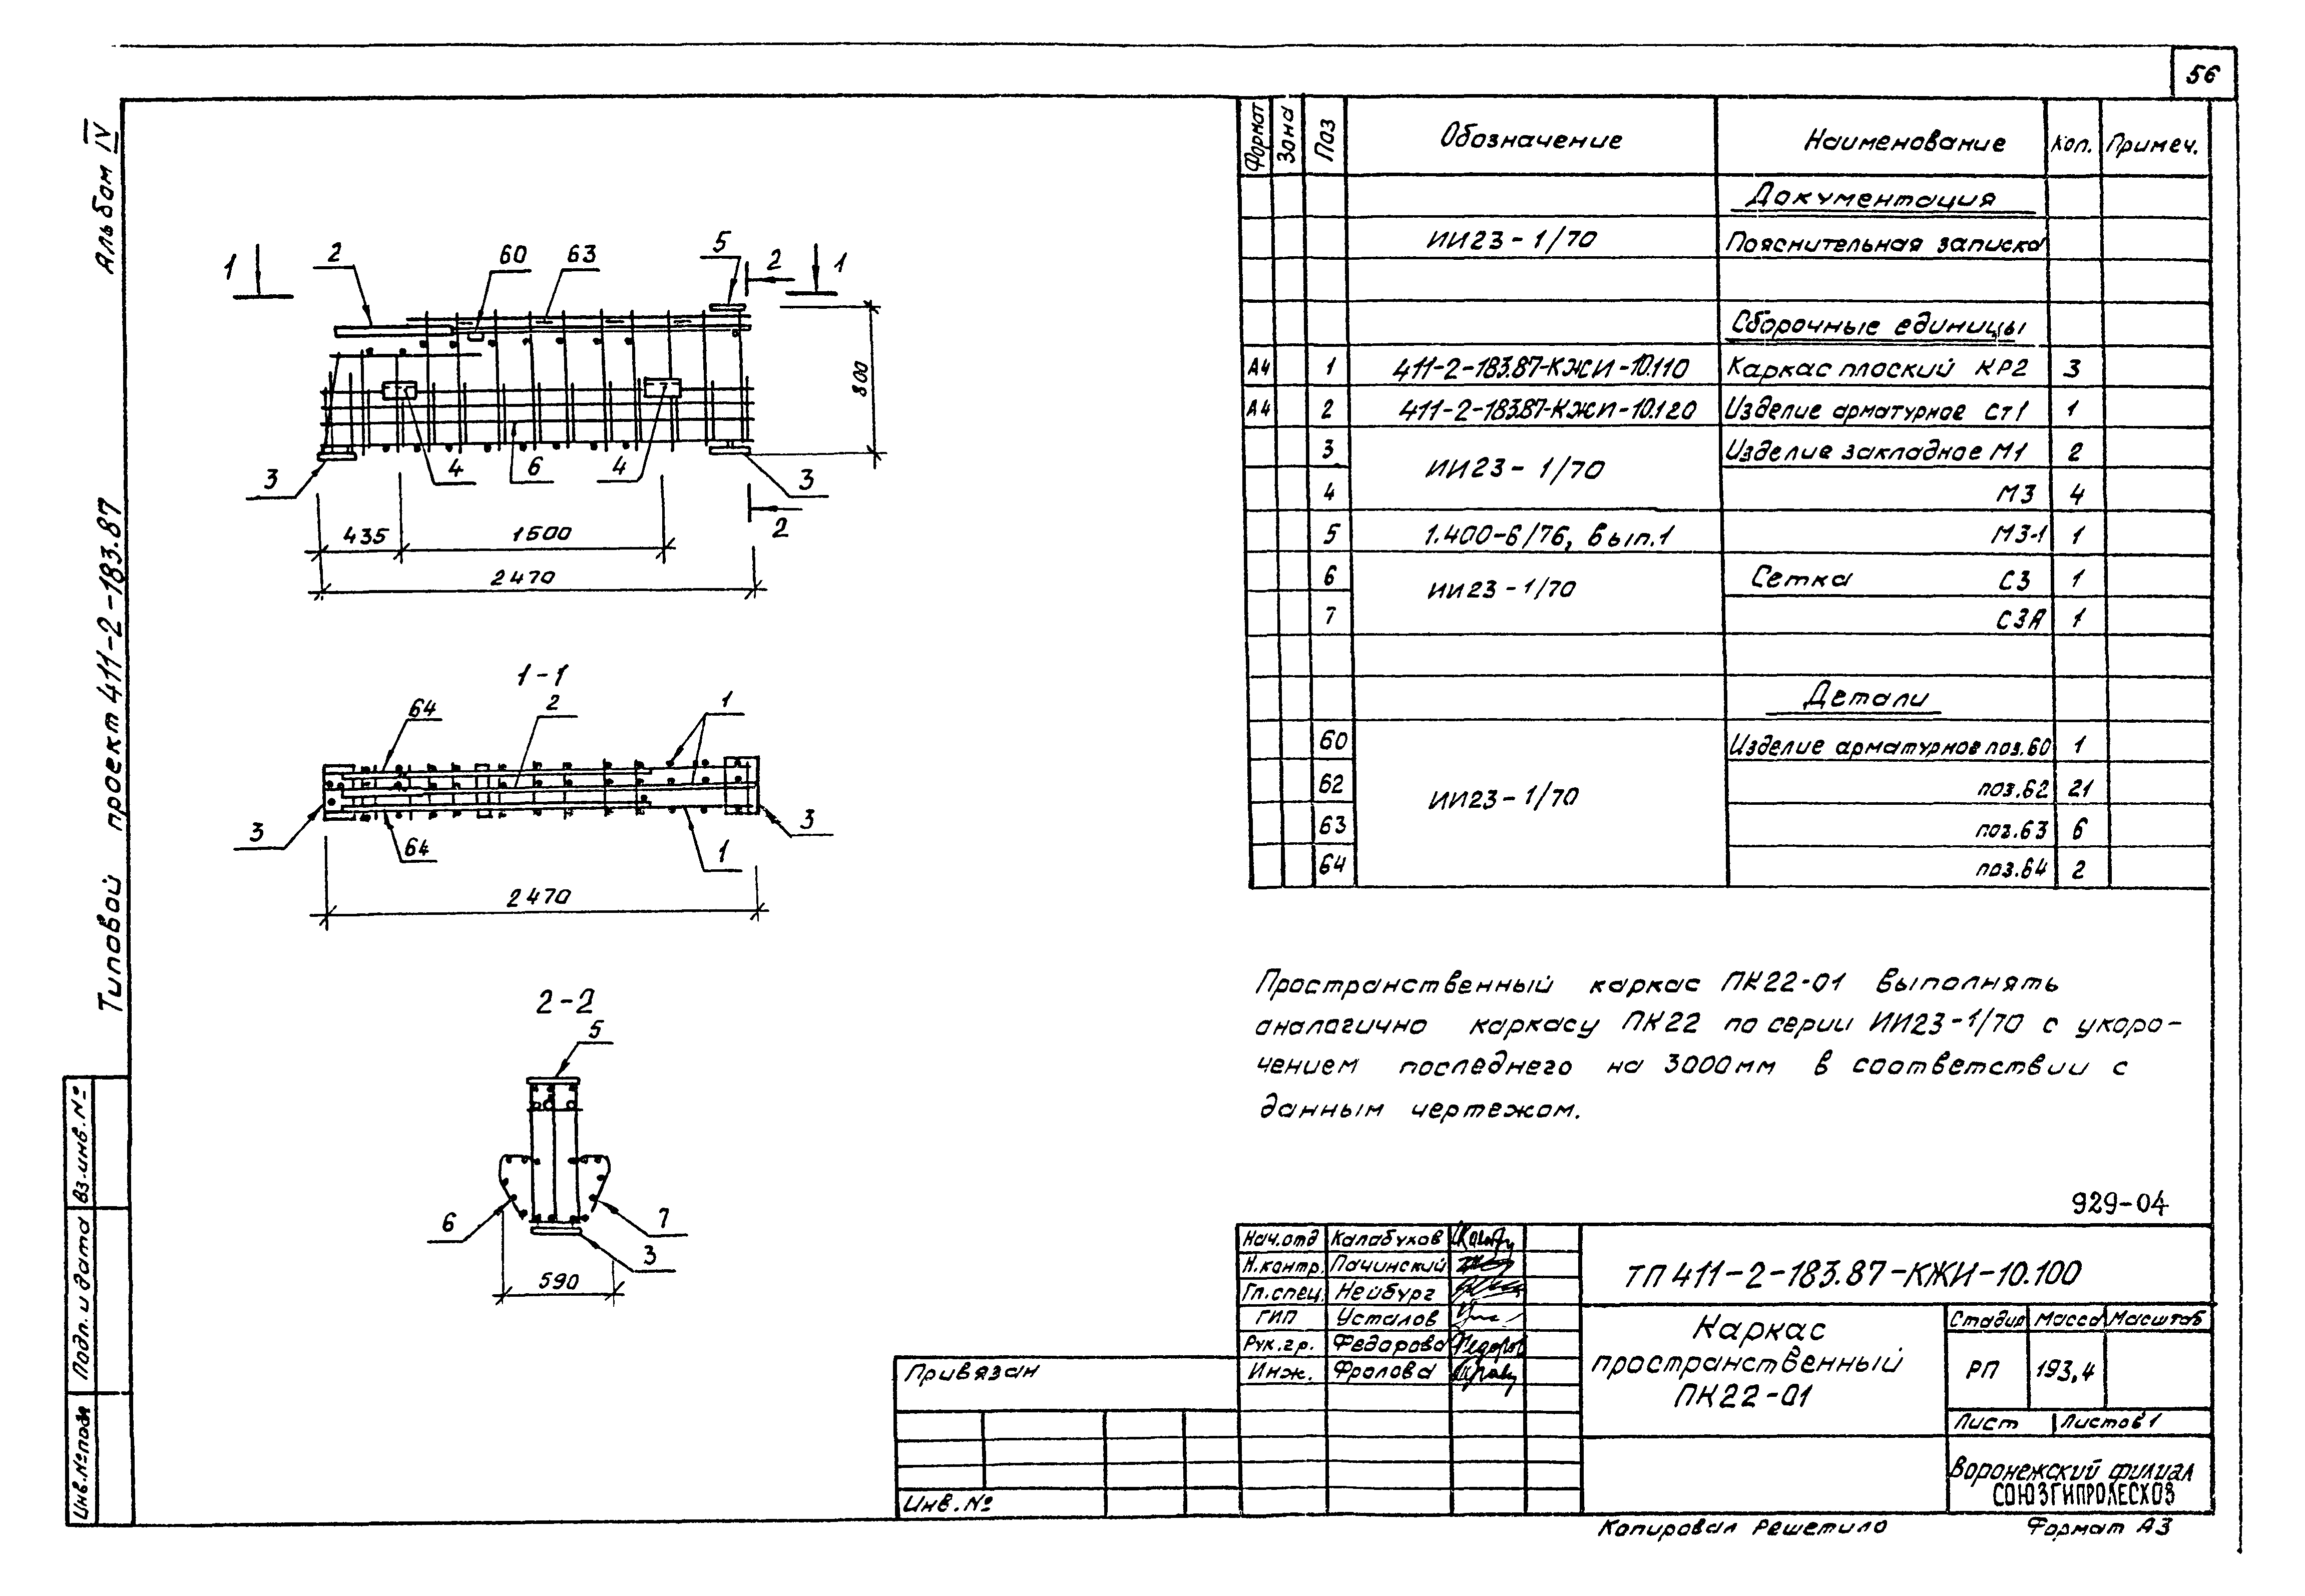 56
Альбом IV
Типовой проект 411-2-183.87
Вз.инв.№
Подп. и дата
Инв.№подл
1
2
60
63
5
2
1
800
3
4
6
4
3
2
435
1500
2470
1-1
64
2
1
3
64
1
3
2470
2-2
5
6
7
3
590
Формат Зона Поз Обозначение Наименование Кол. Примеч.
Документация
ИИ23-1/70 Пояснительная записка
Сборочные единицы
А4 1 411-2-183.87-КЖИ-10.110 Каркас плоский КР2 3
А4 2 411-2-183.87-КЖИ-10.120 Изделие арматурное Ст1 1
3 ИИ23-1/70 Изделие закладное М1 2
4 М3 4
5 1.400-6/76, вып.1 М3-1 1
6 ИИ23-1/70 Сетка С3 1
7 С3А 1
Детали
60 Изделие арматурное поз.60 1
62 ИИ23-1/70 поз.62 21
63 поз.63 6
64 поз.64 2
Пространственный каркас ПК22-01 выполнять
аналогично каркасу ПК22 по серии ИИ23-1/70 с укоро-
чением последнего на 3000мм в соответствии с
данным чертежом.
929-04
Нач.отд Калабухов
Н.контр. Пачинский
Гл.спец. Нейбург
ГИП Усталов
Рук.гр. Федорова
Инж. Фролова
ТП 411-2-183.87-КЖИ-10.100
Каркас
пространственный
ПК22-01
Стадия Масса Масштаб
РП 193,4
Лист Листов 1
Воронежский филиал
СОЮЗГИПРОЛЕСХОЗ
Привязан
Инв.№
Копировал Решетило Формат А3